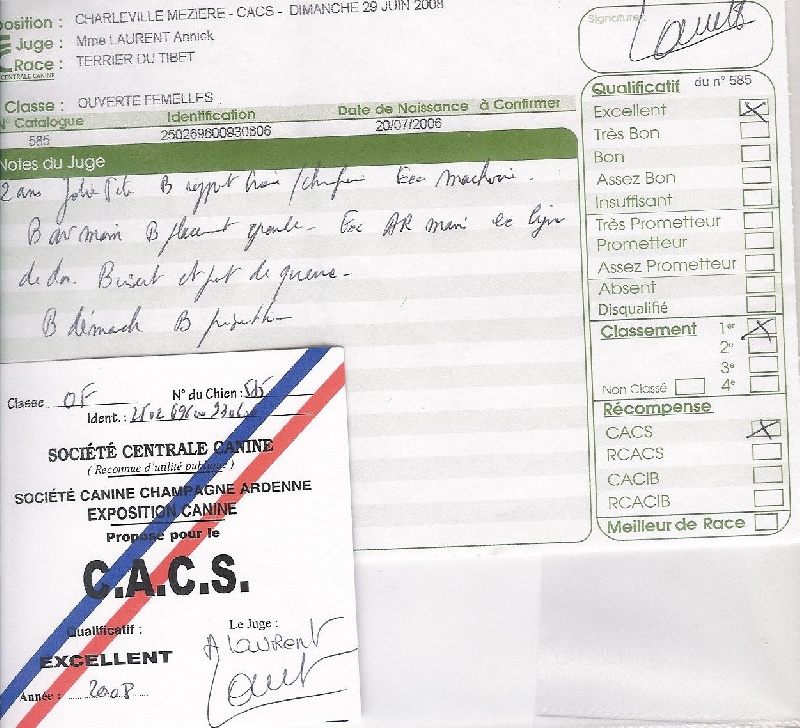 position : CHARLEVILLE MEZIERE - CACS - DIMANCHE 29 JUIN 2008
Juge : Mme LAURENT Annick
Race : TERRIER DU TIBET
CENTRALE CANINE
Classe : OUVERTE FEMELLES
N° Catalogue Identification Date de Naissance à Confirmer
585 250269600930606 20/07/2006
Notes du Juge
2 ans Jolie tête B rapport Exc machoire.
B av main B Exc AR
de dos. et port de queue.
B démarch B
Signature
Qualificatif du n° 585
Excellent X
Très Bon
Bon
Assez Bon
Insuffisant
Très Prometteur
Prometteur
Assez Prometteur
Absent
Disqualifié
Classement 1er X
2e
3e
Non Classé 4e
Récompense
CACS X
RCACS
CACIB
RCACIB
Meilleur de Race
Classe OF N° du Chien : 585
Ident. :
SOCIÉTÉ CENTRALE CANINE
( Reconnue d'utilité publique )
SOCIÉTÉ CANINE CHAMPAGNE ARDENNE
EXPOSITION CANINE
Proposé pour le
C.A.C.S.
Qualificatif :
EXCELLENT
Le Juge :
A LAURENT
Année : 2008